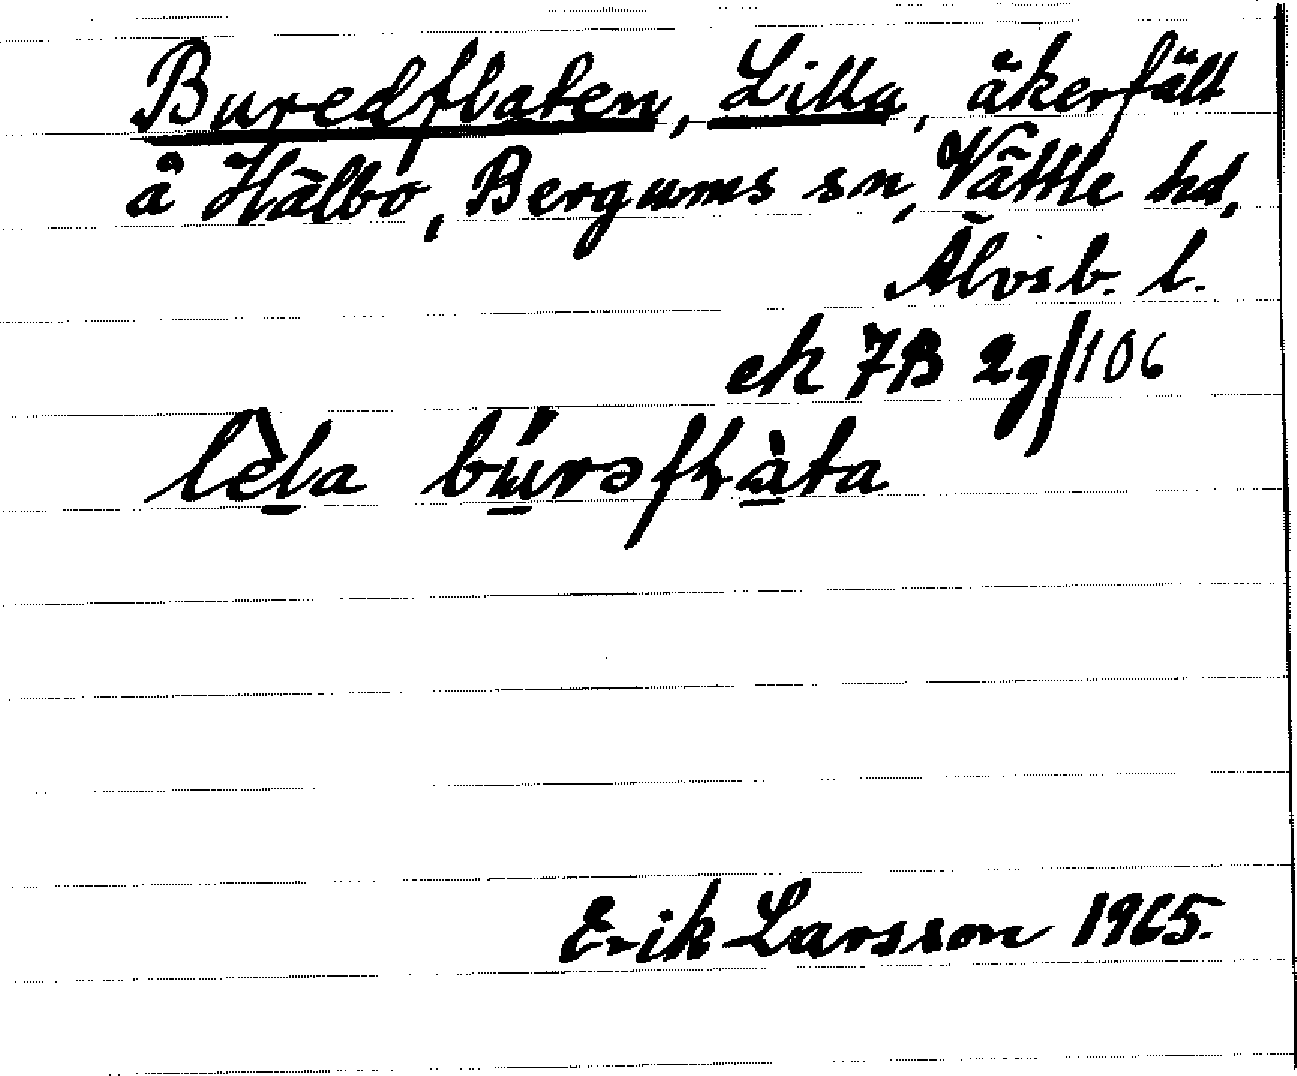 Buredflaten, Lilla, åkerfält
å Hälbo, Bergums sn, Vättle hd,
Älvsb. l.
ek 7B 2g/106
Erik Larsson 1965.